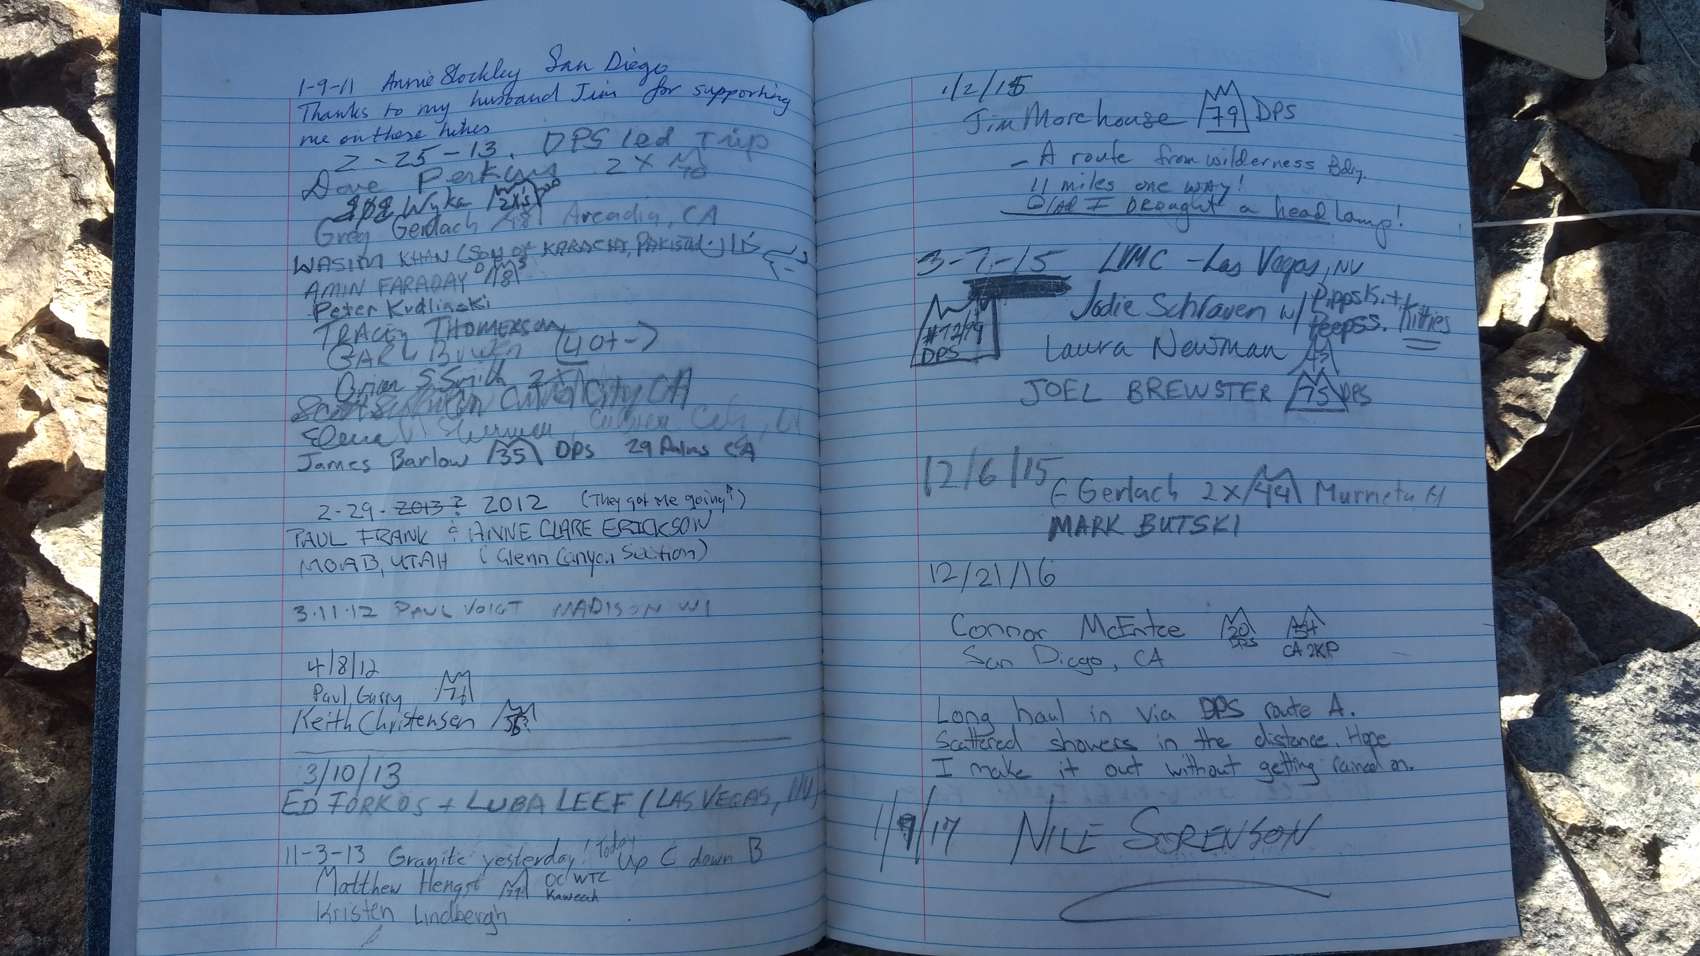 1-9-11 Annie Stockley San Diego
Thanks to my husband Jim for supporting
me on these hikes
2-25-13. DPS led Trip
Dave Perkins 2x
Wyka
Greg Gerlach 48 Arcadia, CA
WASIM KHAN (Son of KARACHI, PAKISTAN)
AMIN FARADAY
Peter Kudlinski
TRACEY THOMERSON
(40+-)
Brian S Smith
Culver City CA
Elena Sherman, Culver City, CA
James Barlow 35 DPS 29 Palms CA
2-29-2013? 2012 (They got me going!)
PAUL FRANK & ANNE CLARE ERICKSON
MOAB, UTAH (Glenn Canyon Section)
3-11-12 PAUL VOIGT MADISON WI
4/8/12
Paul Garry
Keith Christensen
3/10/13
ED FORKOS + LUBA LEEF (LAS VEGAS, NV)
11-3-13 Granite yesterday! Today up C down B
Matthew Hengst OC WTC
Kaweah
Kristen Lindbergh
1/2/15
Jim Morehouse 79 DPS
- A route from wilderness Bdry
11 miles one way!
Glad I brought a head lamp!
3-7-15 LVMC - Las Vegas, NV
Jodie Schraven w/ Kitties
#72/99
DPS
Laura Newman
JOEL BREWSTER 75 DPS
12/6/15
G Gerlach 2x/49 Murrieta
MARK BUTSKI
12/21/16
Connor McEntee 30 DPS CA 2KP
San Diego, CA
Long haul in via DPS route A.
Scattered showers in the distance. Hope
I make it out without getting rained on.
1/9/17 NILE SORENSON